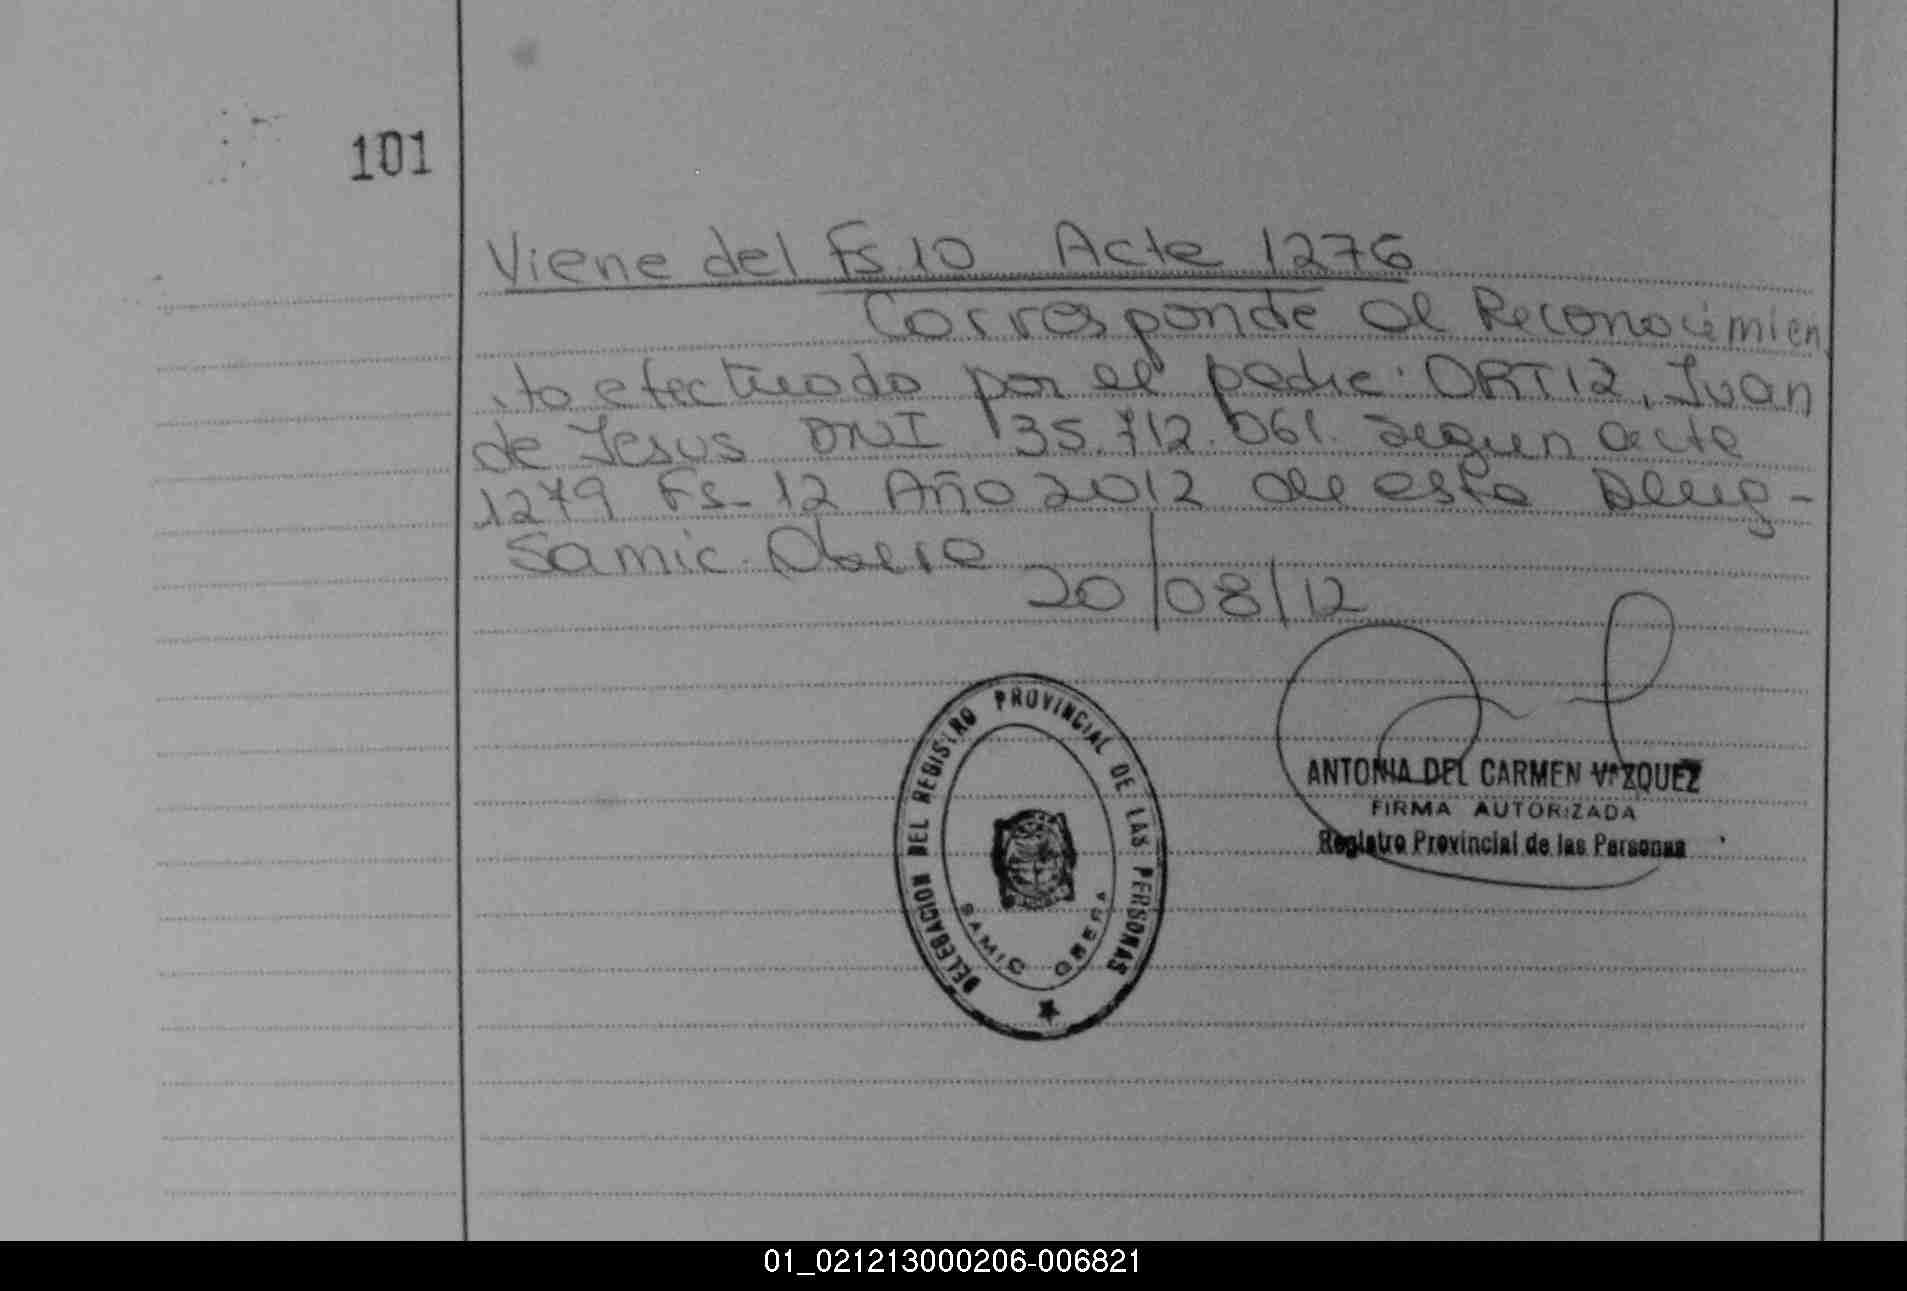 101
Viene del Fs 10 Acta 1276
Corresponde al Reconocimien
to efectuado por el padre: ORTIZ, Juan
de Jesus DNI 35.712.061. segun acta
1279 Fs- 12 Año 2012 de esta Deleg-
Samic. Obera
20/08/12
DELEGACION DEL REGISTRO PROVINCIAL DE LAS PERSONAS
SAMIC OBERA
ANTONIA DEL CARMEN VAZQUEZ
FIRMA AUTORIZADA
Registro Provincial de las Personas
01_021213000206-006821